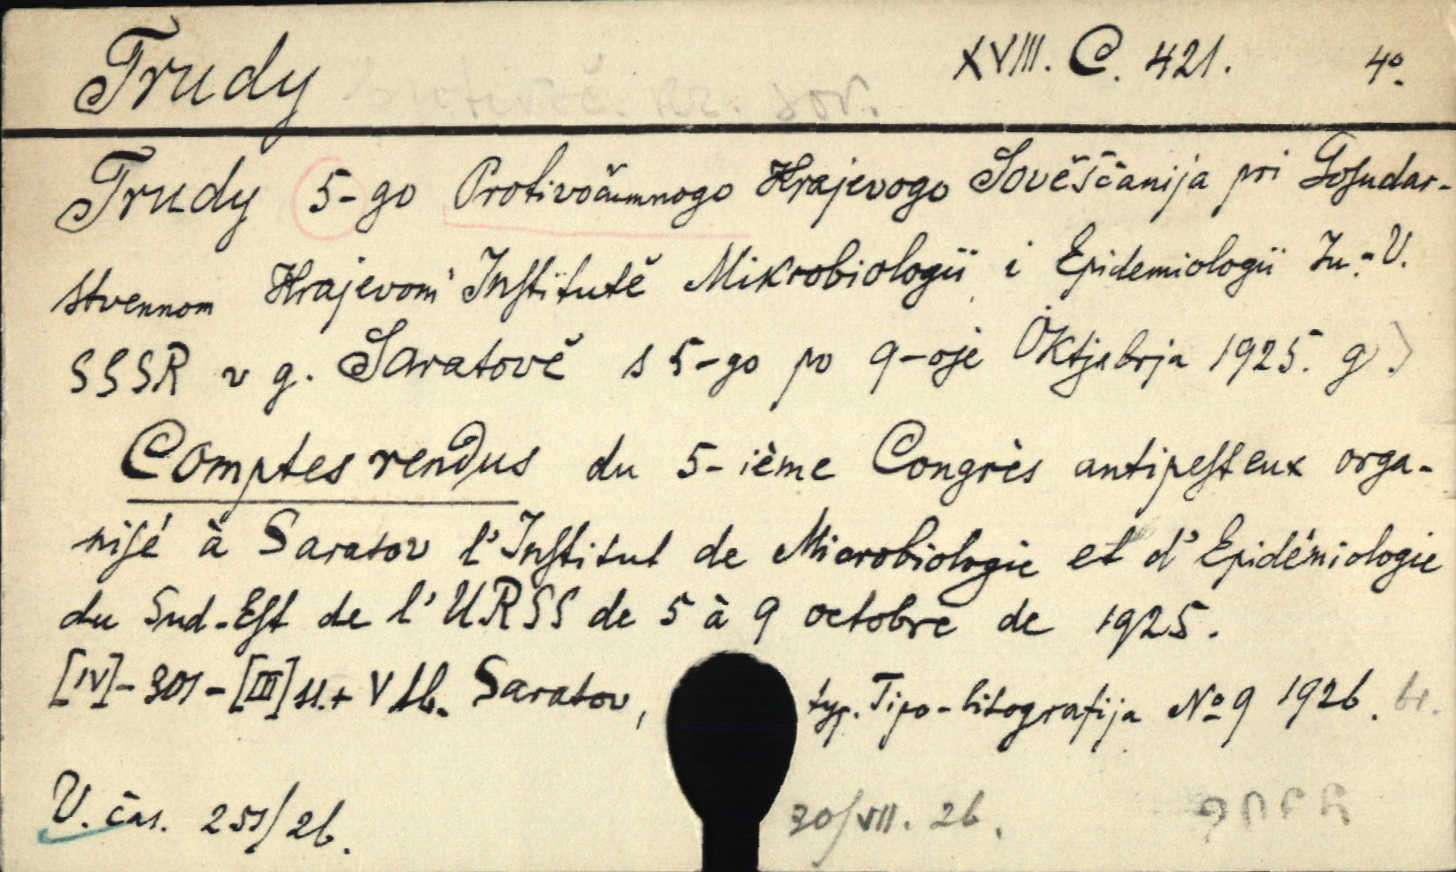 Trudy XVIII. C. 421. 4°.
Trudy 5-go Protivočumnogo Krajevogo Sověščanija pri Gosudar-
stvennom Krajevom Institutě Mikrobiologii i Epidemiologii Ju.-V.
SSSR v g. Saratově s 5-go po 9-oje Oktjabrja 1925. g.)
Comptes rendus du 5-ième Congrès antipesteux orga-
nisé à Saratov l'Institut de Microbiologie et d'Epidémiologie
du Sud-Est de l'URSS de 5 à 9 octobre de 1925.
[IV]-301-[III] st.+ V tb. Saratov, typ. Tipo-litografija No 9 1926. br.
V. čas. 251/26. 30/VII. 26.